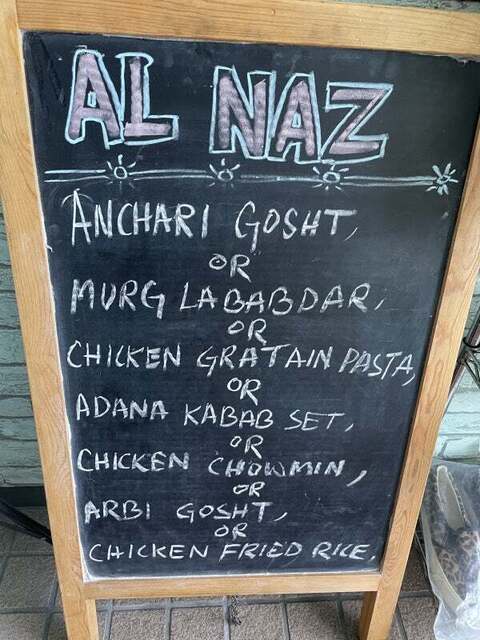 AL NAZ
ANCHARI GOSHT,
OR
MURG LABABDAR,
OR
CHICKEN GRATAIN PASTA,
OR
ADANA KABAB SET,
OR
CHICKEN CHOWMIN,
OR
ARBI GOSHT,
OR
CHICKEN FRIED RICE.